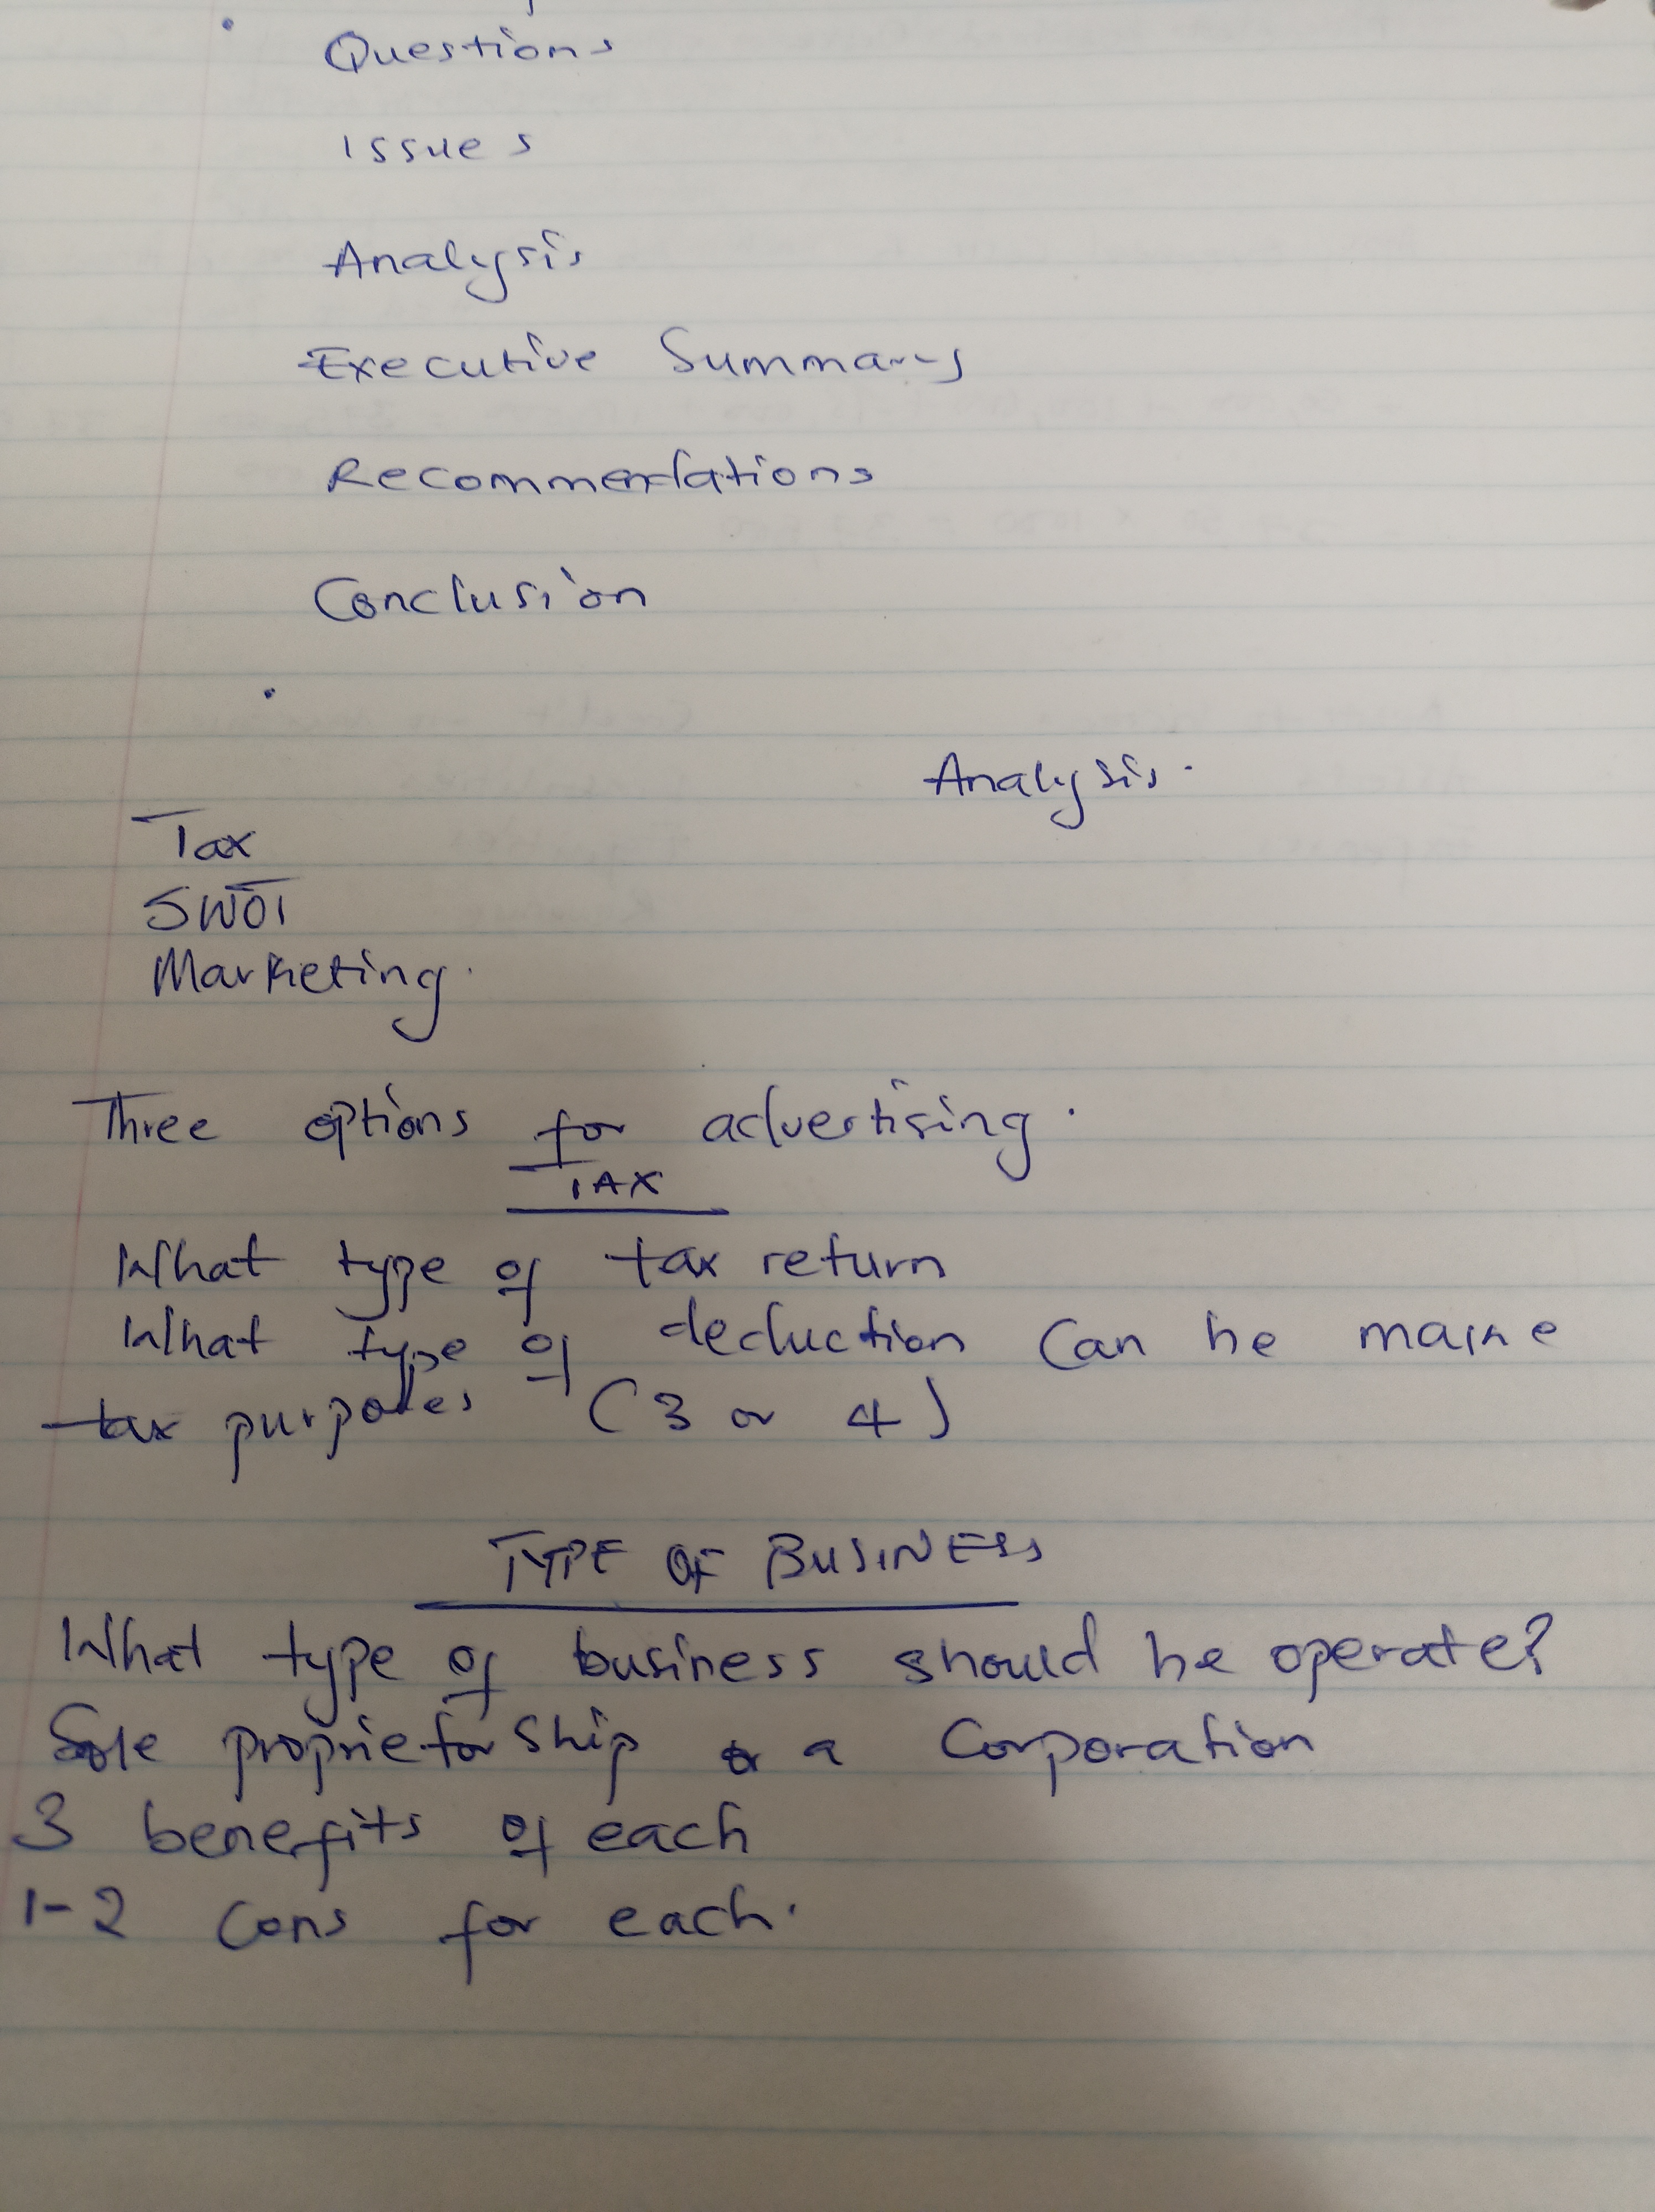 Questions
Issues
Analysis
Executive Summary
Recommendations
Conclusion
Analysis.
Tax
SWOT
Marketing.
Three options for advertising.
TAX
What type of tax return
What type of deduction can he
tax purposes (3 or 4)
TYPE OF BUSINESS
What type of business should he operate?
Sole proprietorship or a Corporation
3 benefits of each
1-2 Cons for each.